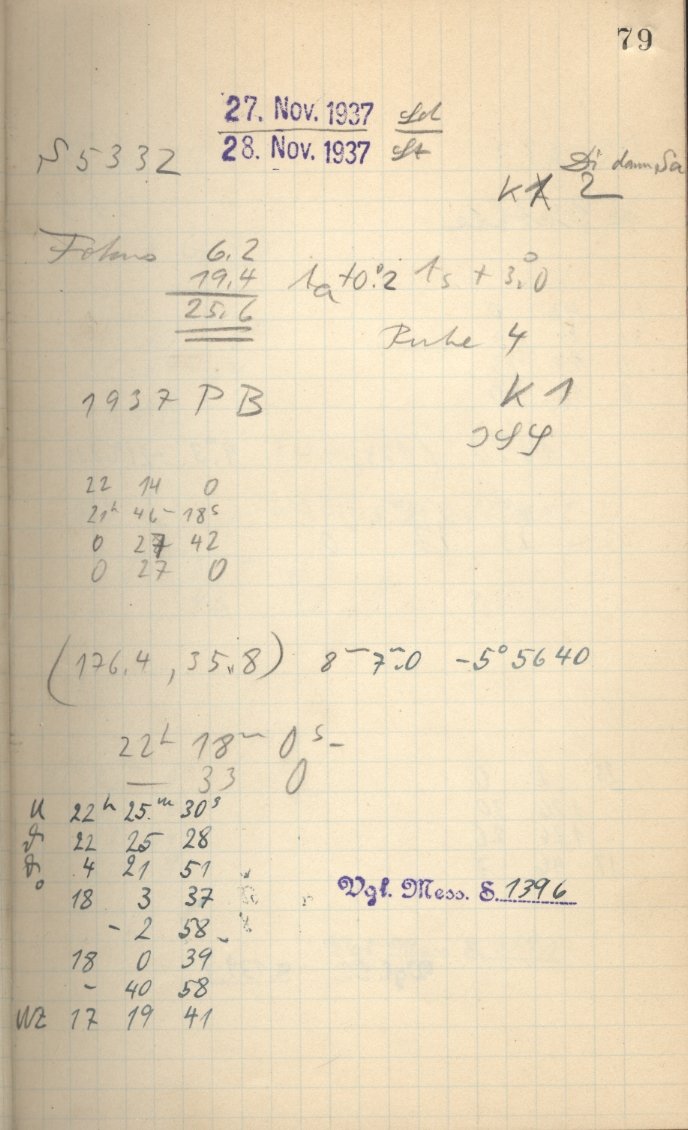 79
27. Nov. 1937
28. Nov. 1937
S 5332
Di dann Sa
K 2
Fokus 6.2
19.4 ta +0.°2 ts + 3.°0
25.6
Ruhe 4
1937 PB K 1
22 14 0
21h 46m 18s
0 27 42
0 27 0
(176.4, 35.8) 8m 7m.0 -5° 56 40
22h 18m 0s -
— 33 0
U 22h 25.m 30s
ϑ 22 25 28
ϑ0 4 21 51
18 3 37
- 2 58
18 0 39
- 40 58
WZ 17 19 41
Vgl. Mess. S. 1396